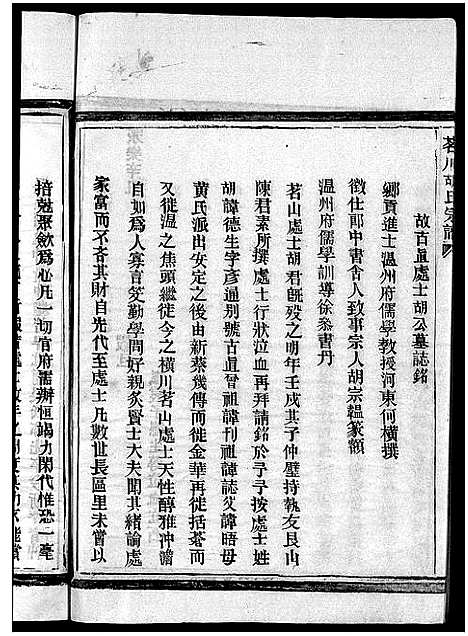 茗川胡氏宗譜
故古直處士胡公墓誌銘
鄉貢進士溫州府儒學教授河東何橫撰
徵仕郎中書舍人致事宗人胡宗韞篆額
溫州府儒學訓導徐叅書丹
茗山處士胡君旣歿之明年壬戌其子仲壁持執友艮山
陳君素所撰處士行狀泣血再拜請銘於予予按處士姓
胡諱德生字彥通别號古直曾祖諱刊祖諱誌父諱晤母
黃氏派出安定之後由新蔡幾傳而徙金華再徙括蒼而
又徙溫之焦頭繼徒今之橫川茗山處士天性醇雅冲澹
自如爲人寡言笑勤學問好親炙賢士大夫聞其緒論處
家富而不吝其財自先代至處士凡數世長區里未嘗以
掊尅聚歛爲心凡一切官府需辦恒竭力閑代惟恐一毫